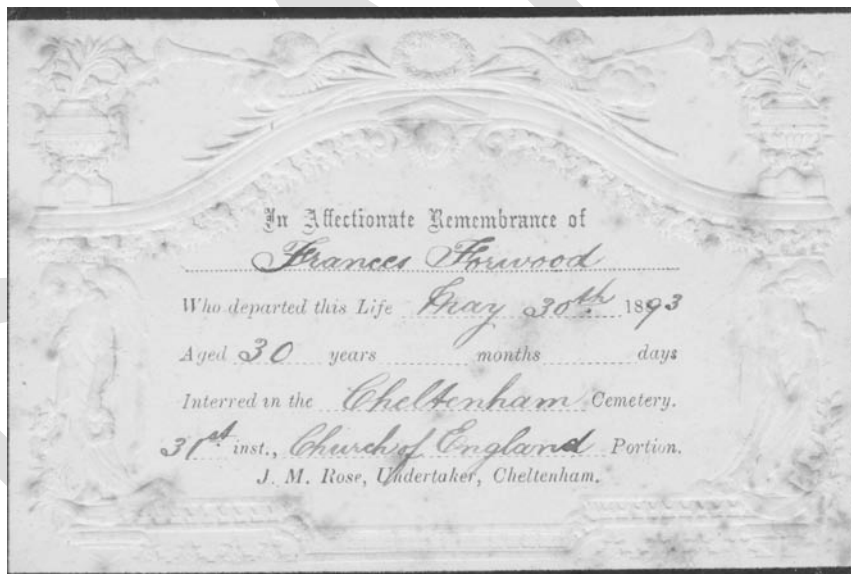 In Affectionate Remembrance of
Frances Forwood
Who departed this Life May 30th 1893
Aged 30 years months days
Interred in the Cheltenham Cemetery.
31st inst., Church of England Portion.
J. M. Rose, Undertaker, Cheltenham.